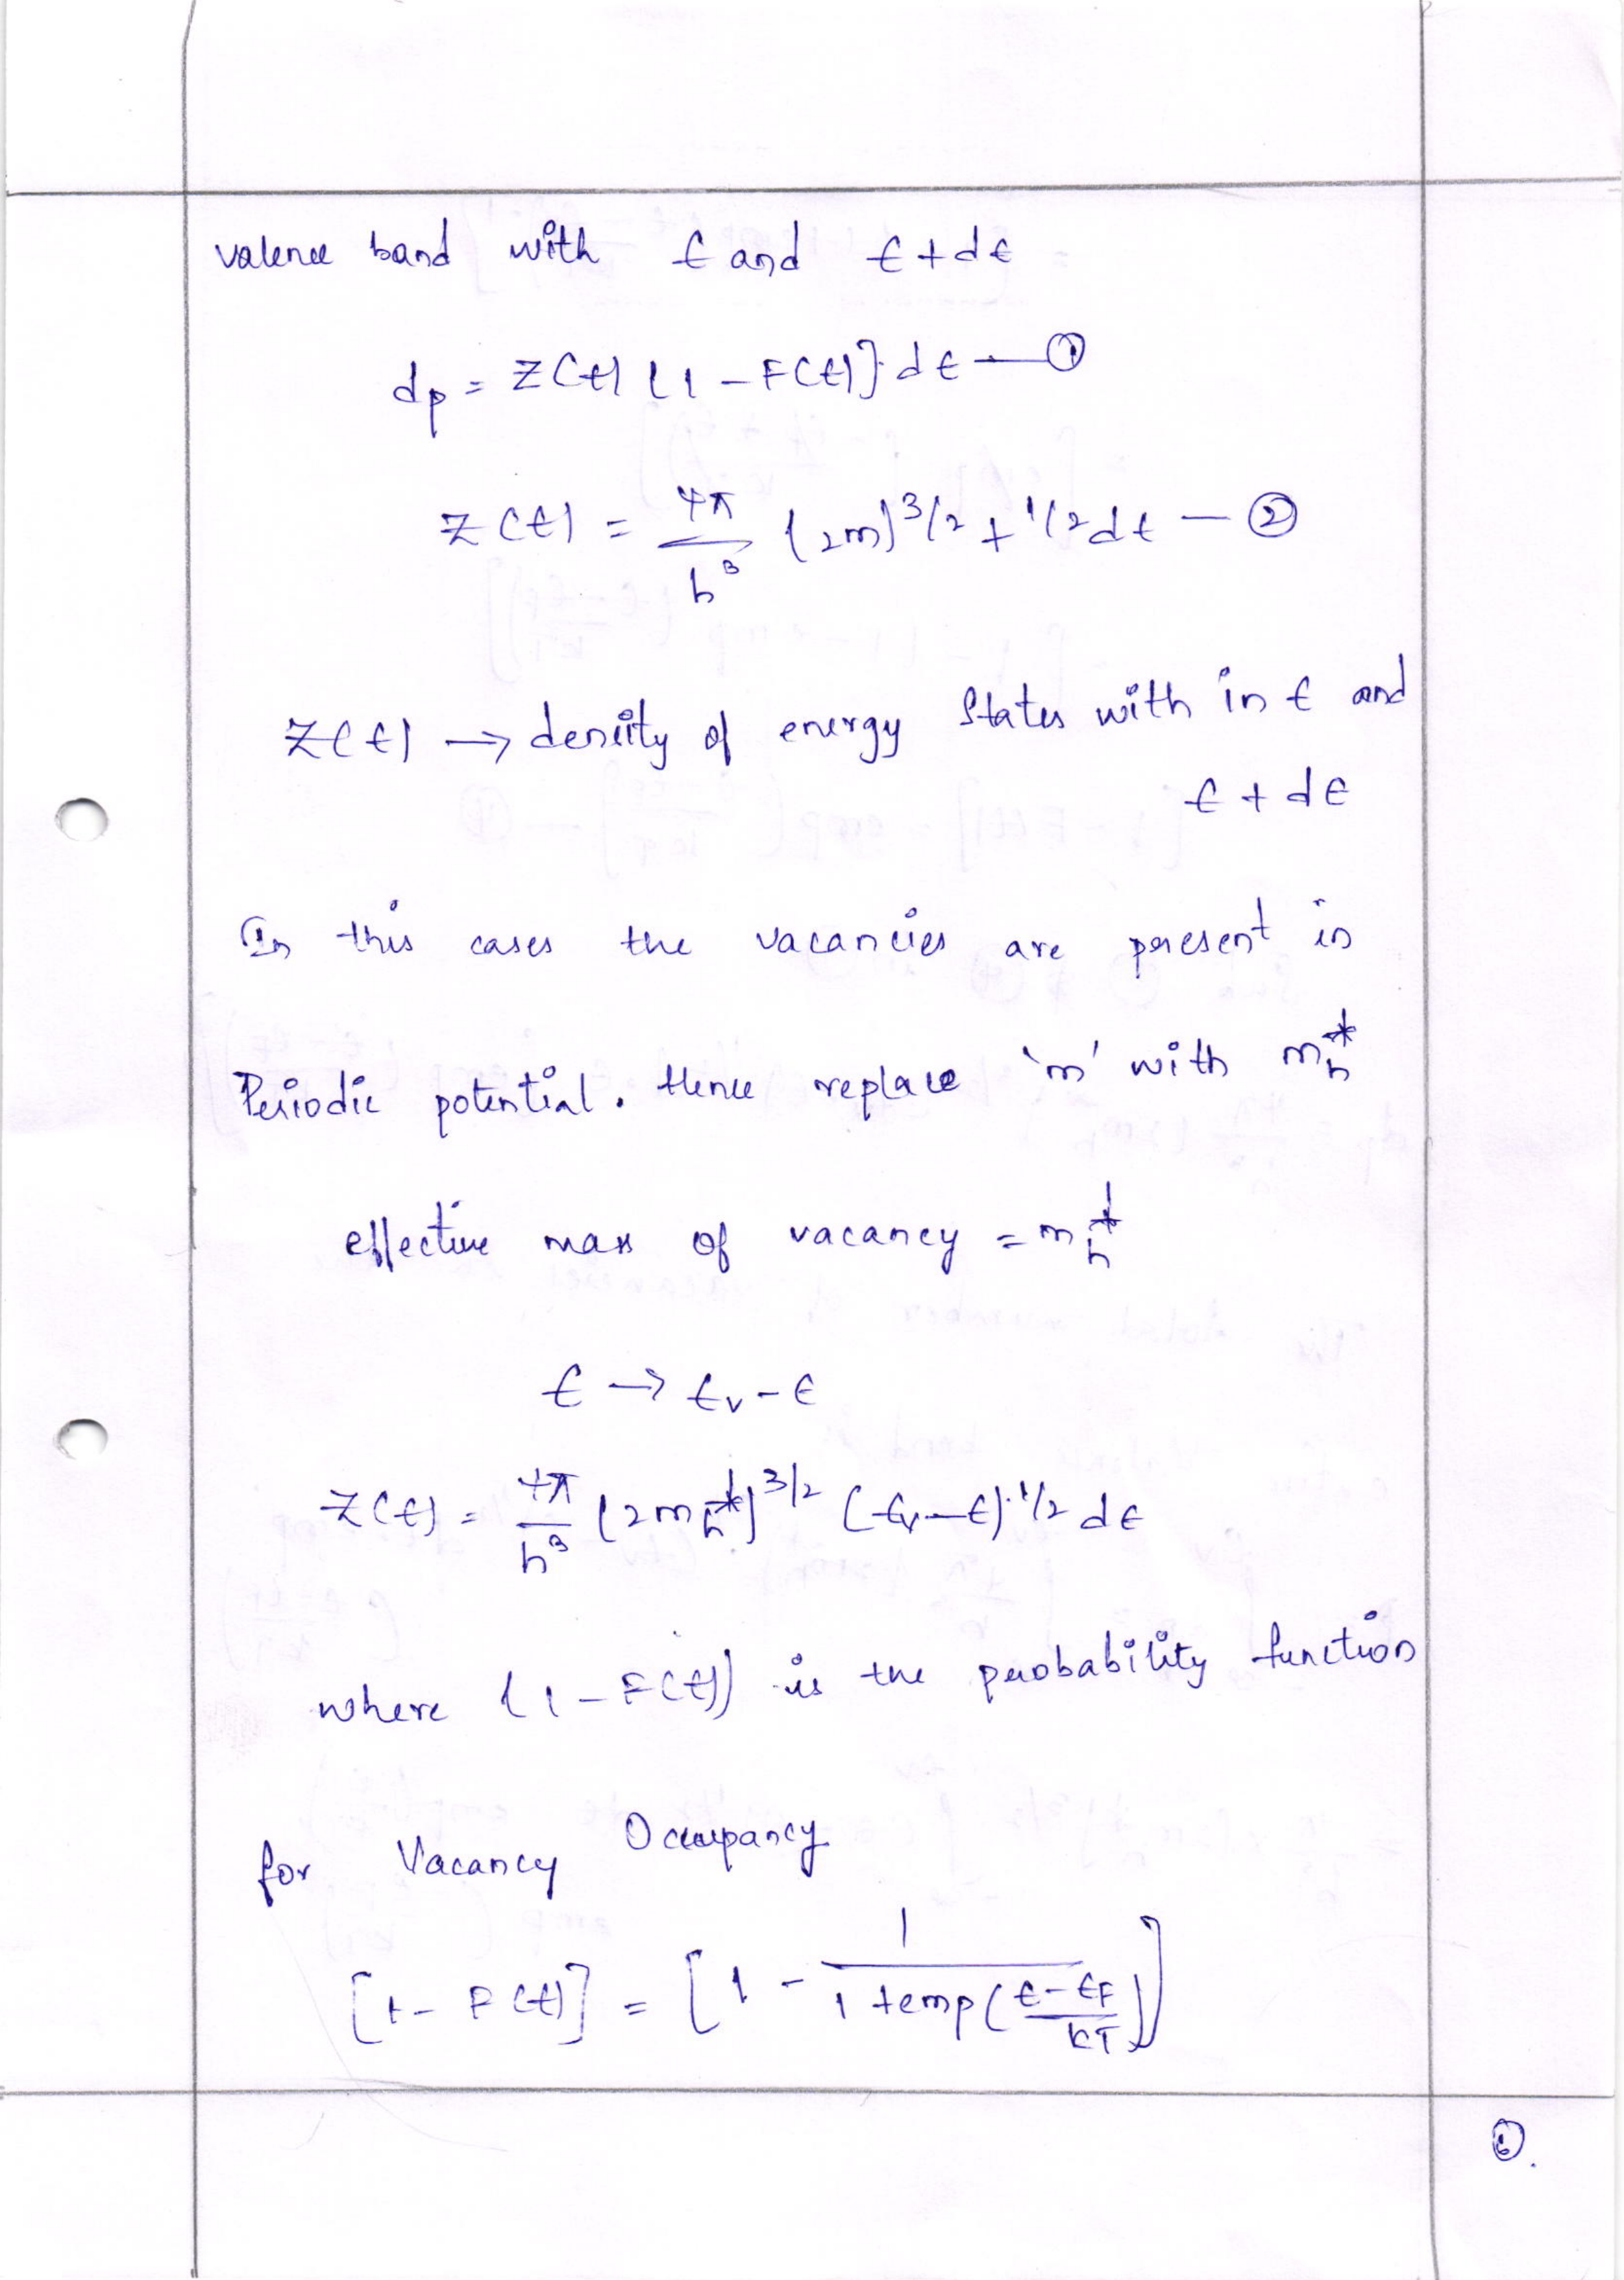 valence band with E and E+dE
dp = Z(E) [1 - F(E)] dE — ①
Z(E) = 4π/h³ (2m)^3/2 E^1/2 dE — ②
Z(E) → density of energy states with in E and
E + dE
In this cases the vacancies are present in
Periodic potential. Hence replace 'm' with m*h
effective mass of vacancy = m*h
E → Ev - E
Z(E) = 4π/h³ (2m*h)^3/2 (Ev - E)^1/2 dE
where (1 - F(E)) is the probability function
for Vacancy Occupancy
[1 - F(E)] = [1 - 1/(1 + exp((E - EF)/kT))]